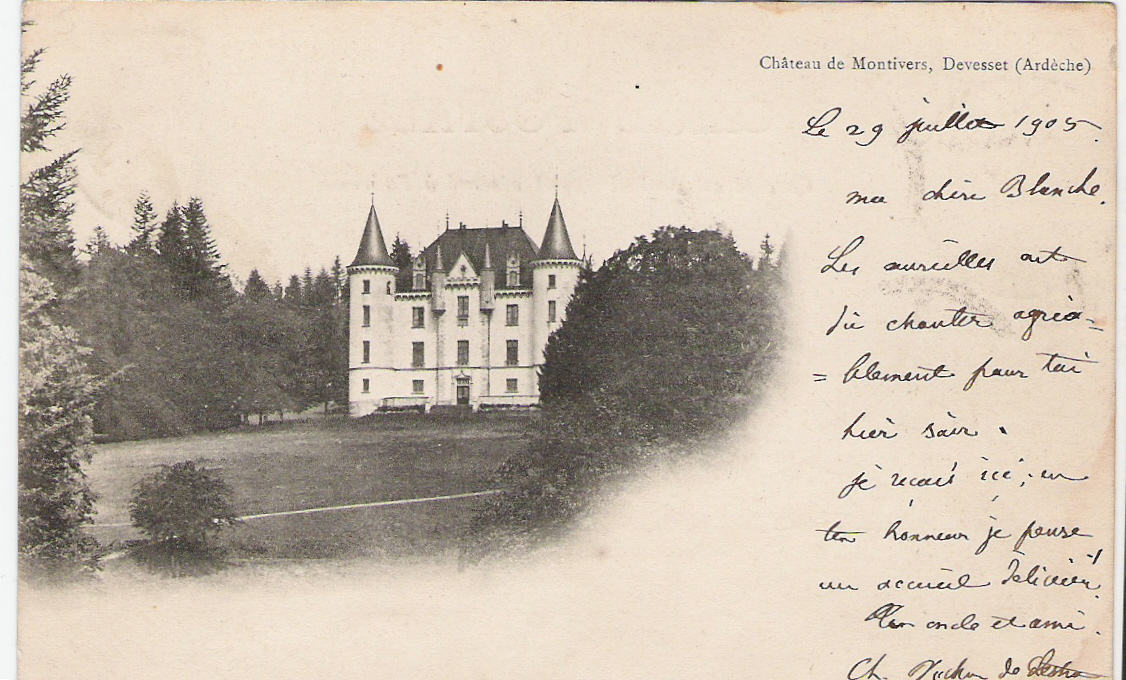 Château de Montivers, Devesset (Ardèche)
Le 29 juillet 1905.
ma chère Blanche.
Les oreilles ont
dû chanter agréa=
=blement pour toi
hier soir.
je reçois ici, en
ton honneur je pense
un accueil
Ton oncle et ami.
Ch. de